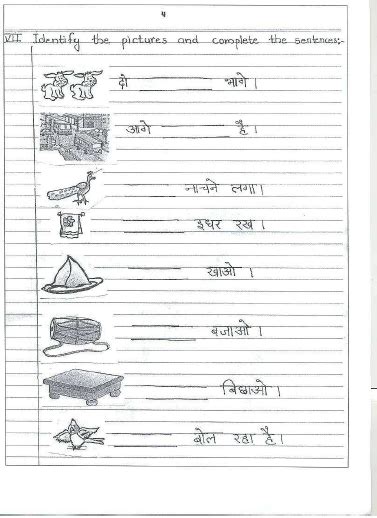 4
VII. Identify the pictures and complete the sentences:-
दो ________ भागे।
आगे ________ है।
________ नाचने लगा।
________ इधर रख।
________ खाओ।
________ बजाओ।
________ बिछाओ।
________ बोल रहा है।